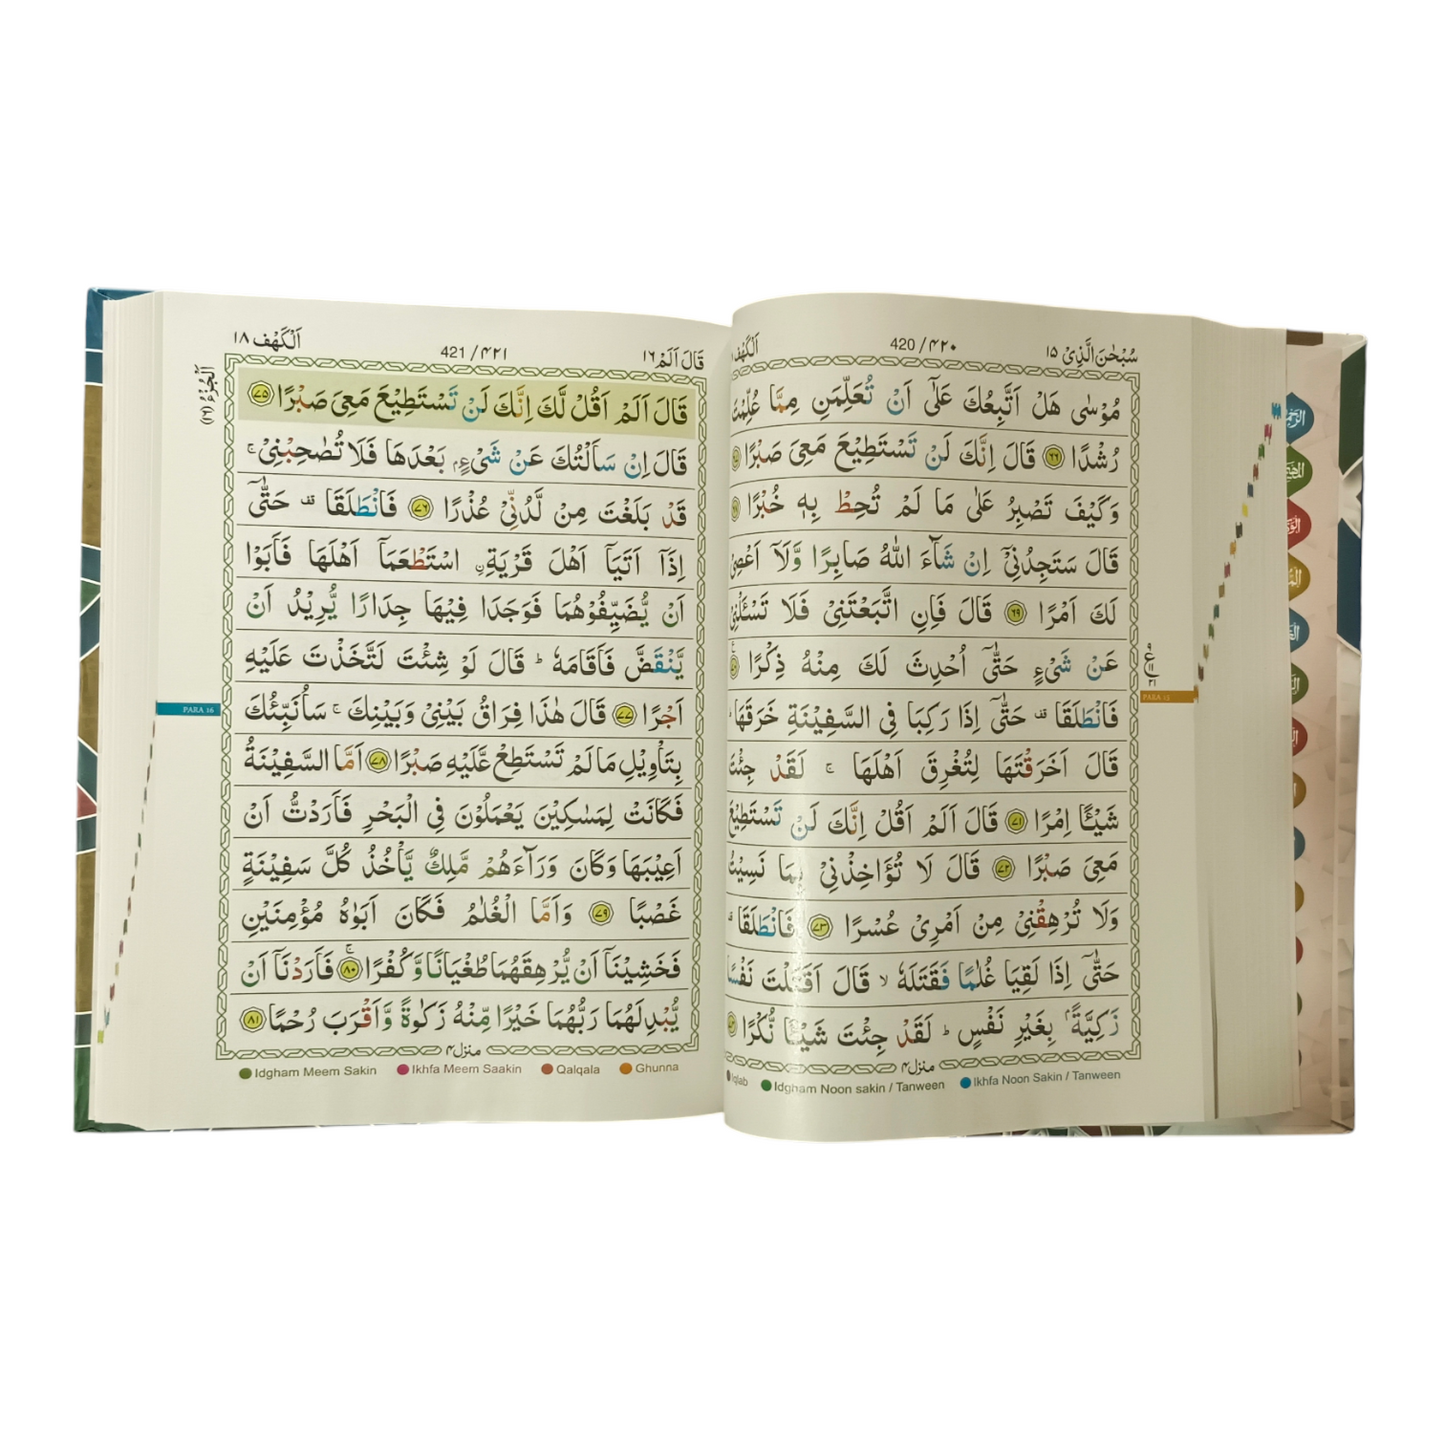 سُبْحٰنَ الَّذِیْ ١٥
420 / ۴۲۰
اَلْكَهْف
مُوْسٰى هَلْ اَتَّبِعُكَ عَلٰٓى اَنْ تُعَلِّمَنِ مِمَّا عُلِّمْتَ
رُشْدًا ﴿٦٦﴾ قَالَ اِنَّكَ لَنْ تَسْتَطِيْعَ مَعِىَ صَبْرًا
وَكَيْفَ تَصْبِرُ عَلٰى مَا لَمْ تُحِطْ بِهٖ خُبْرًا
قَالَ سَتَجِدُنِىْٓ اِنْ شَآءَ اللّٰهُ صَابِرًا وَّلَآ اَعْصِىْ
لَكَ اَمْرًا ﴿٦٩﴾ قَالَ فَاِنِ اتَّبَعْتَنِىْ فَلَا تَسْـَٔلْنِىْ
عَنْ شَىْءٍ حَتّٰٓى اُحْدِثَ لَكَ مِنْهُ ذِكْرًا
فَانْطَلَقَا ۥقف حَتّٰٓى اِذَا رَكِبَا فِى السَّفِيْنَةِ خَرَقَهَا
قَالَ اَخَرَقْتَهَا لِتُغْرِقَ اَهْلَهَا ۚ لَقَدْ جِئْتَ
شَيْـًٔا اِمْرًا ﴿٧١﴾ قَالَ اَلَمْ اَقُلْ اِنَّكَ لَنْ تَسْتَطِيْعَ
مَعِىَ صَبْرًا ﴿٧٢﴾ قَالَ لَا تُؤَاخِذْنِىْ بِمَا نَسِيْتُ
وَلَا تُرْهِقْنِىْ مِنْ اَمْرِىْ عُسْرًا ﴿٧٣﴾ فَانْطَلَقَا
حَتّٰٓى اِذَا لَقِيَا غُلٰمًا فَقَتَلَهٗ ۙ قَالَ اَقَتَلْتَ نَفْسًا
زَكِيَّةًۢ بِغَيْرِ نَفْسٍ ؕ لَقَدْ جِئْتَ شَيْـًٔا نُّكْرًا
منزل ۴
Iqlab
Idgham Noon sakin / Tanween
Ikhfa Noon Sakin / Tanween
PARA 15
قَالَ اَلَمْ ١٦
421 / ۴۲۱
اَلْكَهْف ١٨
اَلْجُزْءُ (١٦)
قَالَ اَلَمْ اَقُلْ لَّكَ اِنَّكَ لَنْ تَسْتَطِيْعَ مَعِىَ صَبْرًا ﴿٧٥﴾
قَالَ اِنْ سَاَلْتُكَ عَنْ شَىْءٍۭ بَعْدَهَا فَلَا تُصٰحِبْنِىْ ۚ
قَدْ بَلَغْتَ مِنْ لَّدُنِّىْ عُذْرًا ﴿٧٦﴾ فَانْطَلَقَا قف حَتّٰٓى
اِذَآ اَتَيَآ اَهْلَ قَرْيَةِ ۨ اسْتَطْعَمَآ اَهْلَهَا فَاَبَوْا
اَنْ يُّضَيِّفُوْهُمَا فَوَجَدَا فِيْهَا جِدَارًا يُّرِيْدُ اَنْ
يَّنْقَضَّ فَاَقَامَهٗ ؕ قَالَ لَوْ شِئْتَ لَتَّخَذْتَ عَلَيْهِ
اَجْرًا ﴿٧٧﴾ قَالَ هٰذَا فِرَاقُ بَيْنِىْ وَبَيْنِكَ ۚ سَاُنَبِّئُكَ
بِتَاْوِيْلِ مَا لَمْ تَسْتَطِعْ عَّلَيْهِ صَبْرًا ﴿٧٨﴾ اَمَّا السَّفِيْنَةُ
فَكَانَتْ لِمَسٰكِيْنَ يَعْمَلُوْنَ فِى الْبَحْرِ فَاَرَدْتُّ اَنْ
اَعِيْبَهَا وَكَانَ وَرَآءَهُمْ مَّلِكٌ يَّاْخُذُ كُلَّ سَفِيْنَةٍ
غَصْبًا ﴿٧٩﴾ وَاَمَّا الْغُلٰمُ فَكَانَ اَبَوٰهُ مُؤْمِنَيْنِ
فَخَشِيْنَآ اَنْ يُّرْهِقَهُمَا طُغْيَانًا وَّكُفْرًا ﴿٨٠﴾ ۚ فَاَرَدْنَآ اَنْ
يُّبْدِلَهُمَا رَبُّهُمَا خَيْرًا مِّنْهُ زَكٰوةً وَّاَقْرَبَ رُحْمًا ﴿٨١﴾
منزل ۴
Idgham Meem Sakin
Ikhfa Meem Saakin
Qalqala
Ghunna
PARA 16